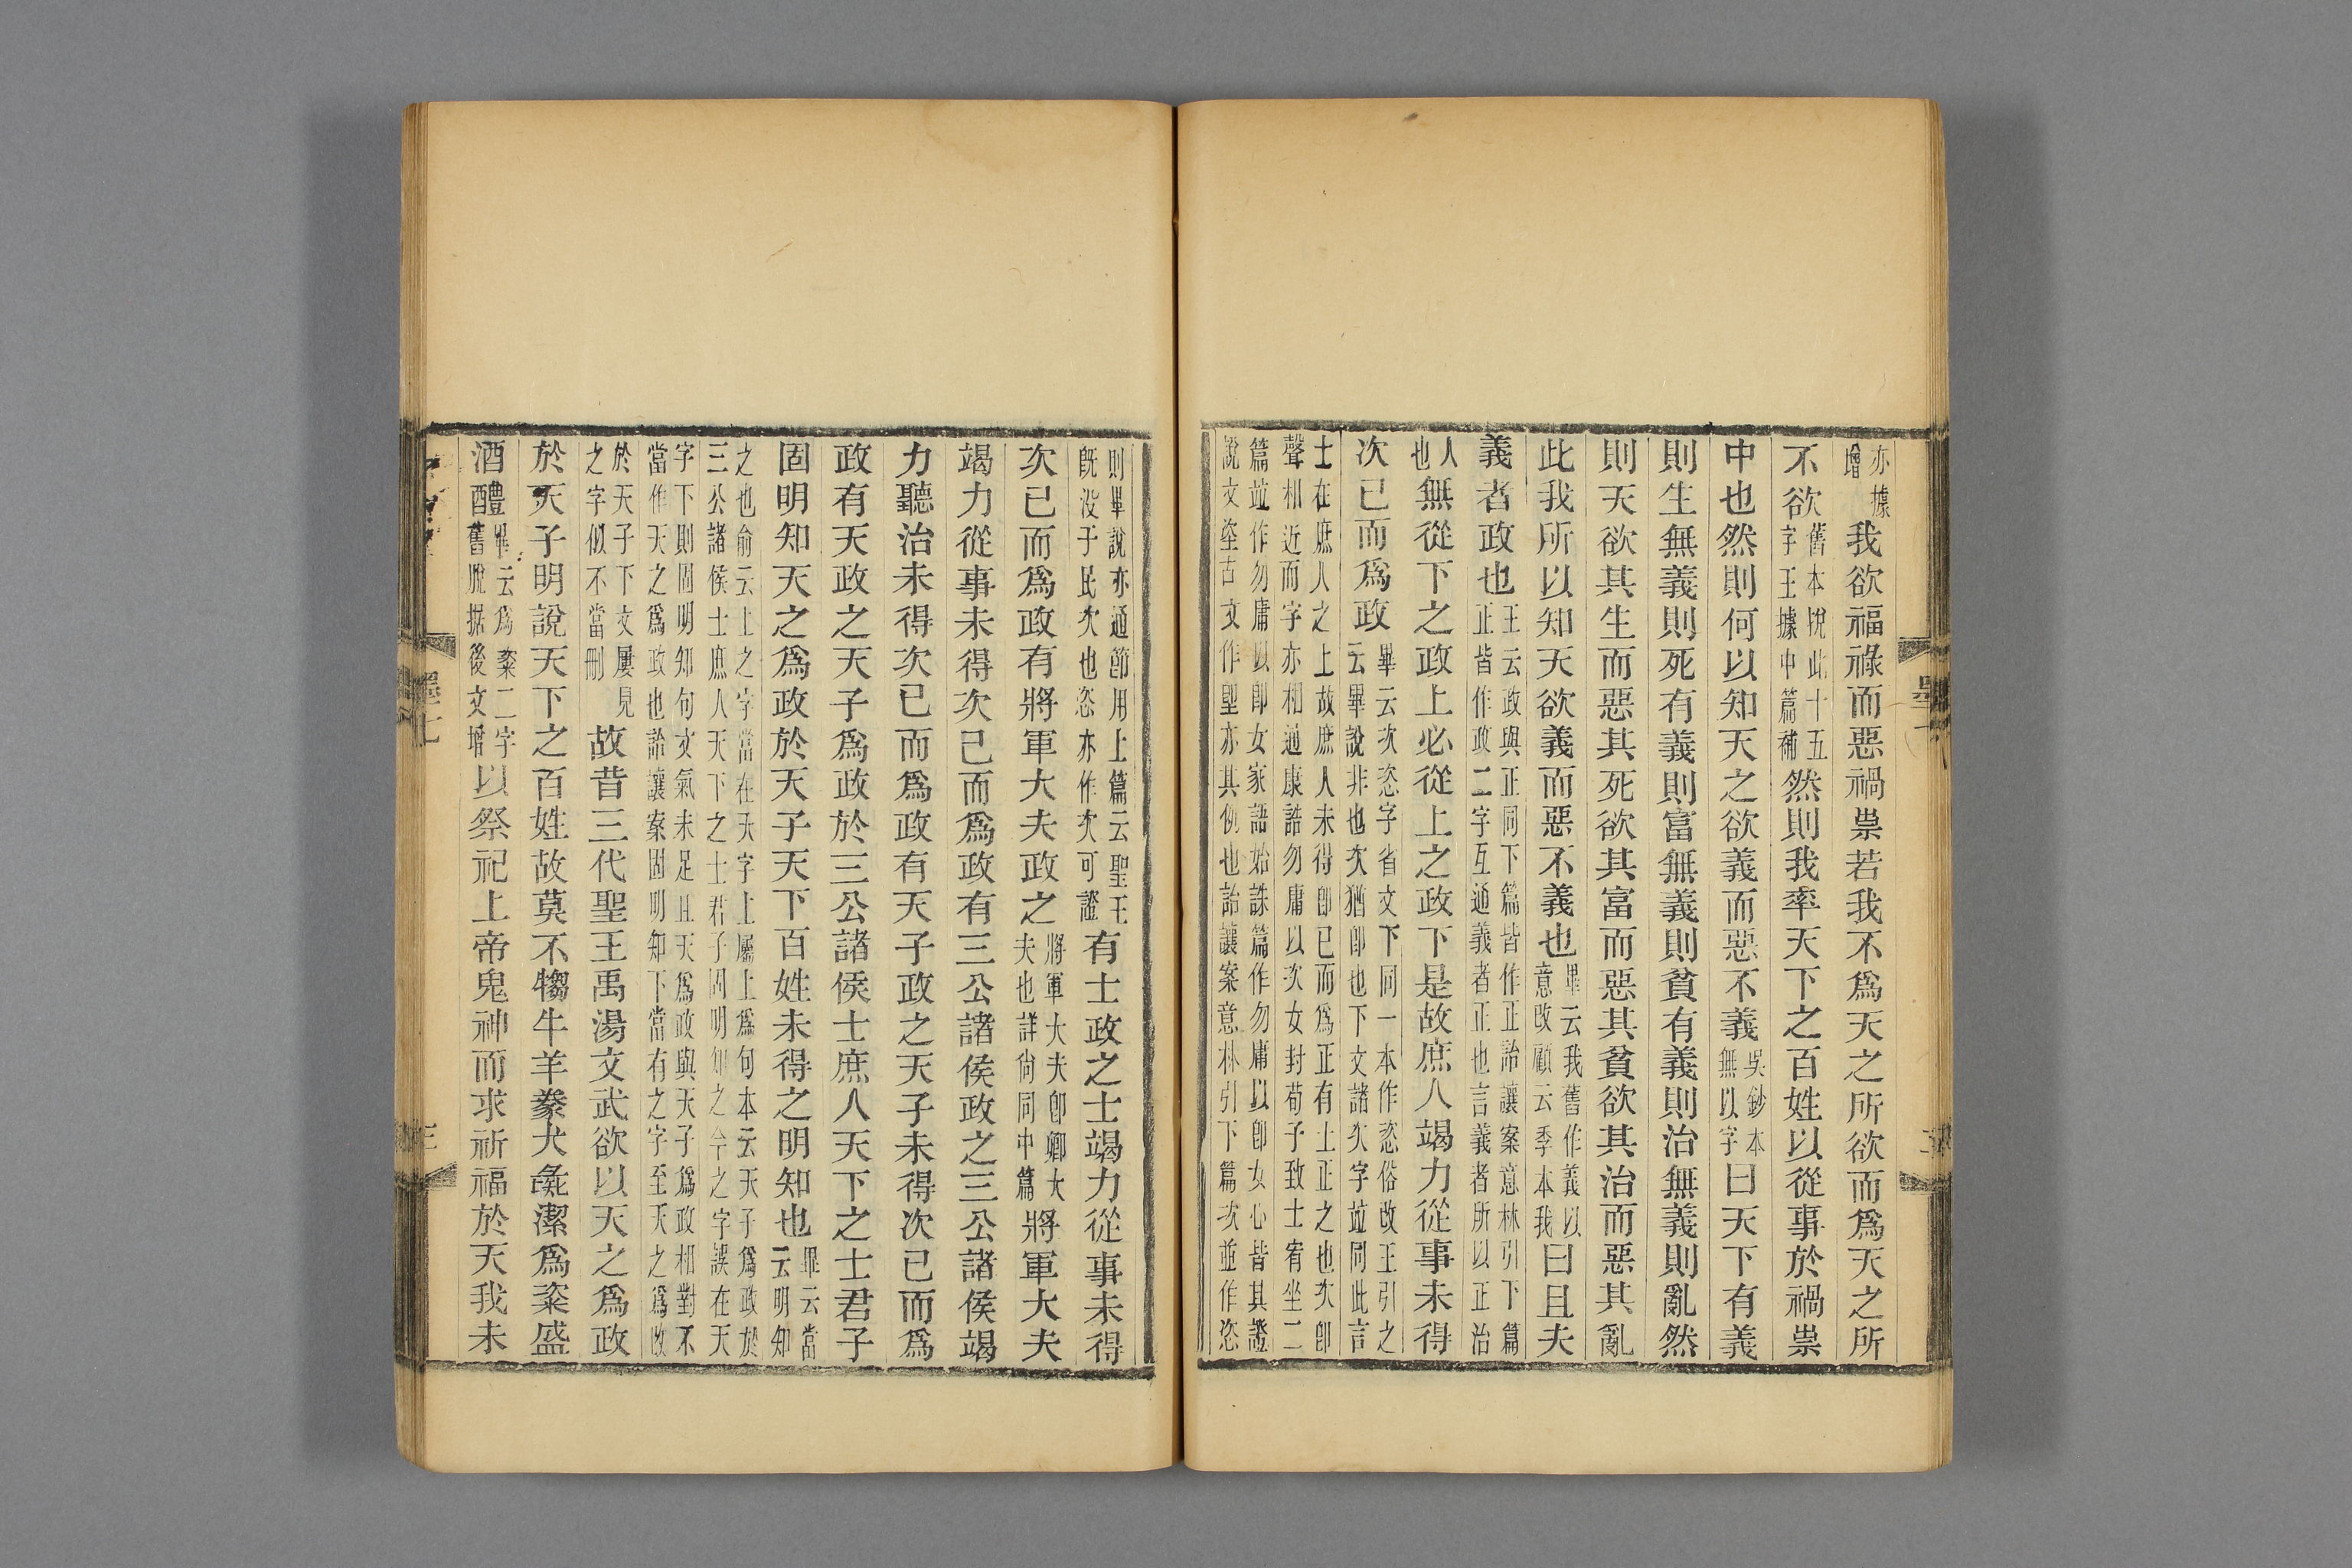 亦據增我欲福祿而惡禍祟若我不爲天之所欲而爲天之所
不欲舊本挩此十五字王據中篇補然則我率天下之百姓以從事於禍祟
中也然則何以知天之欲義而惡不義吳鈔本無以字曰天下有義
則生無義則死有義則富無義則貧有義則治無義則亂然
則天欲其生而惡其死欲其富而惡其貧欲其治而惡其亂
此我所以知天欲義而惡不義也畢云我舊作義以意改顧云季本我曰且夫
義者政也王云政與正同下篇皆作正詒讓案意林引下篇正皆作政二字互通義者正也言義者所以正治
人也無從下之政上必從上之政下是故庶人竭力從事未得
次已而爲政畢云次恣字省文下同一本作恣俗改王引之云畢說非也次猶卽也下文諸次字竝同此言
士在庶人之上故庶人未得卽已而爲正有士正之也次卽聲相近而字亦相通康誥勿庸以次女封荀子致士宥坐二
篇竝作勿庸以卽女家語始誅篇作勿庸以卽女心皆其證說文垐古文作堲亦其例也詒讓案意林引下篇次並作恣
則畢說亦通節用上篇云聖王既没于民次也恣亦作次可證有士政之士竭力從事未得
次已而爲政有將軍大夫政之將軍大夫卽卿大夫也詳尚同中篇將軍大夫
竭力從事未得次已而爲政有三公諸侯政之三公諸侯竭
力聽治未得次已而爲政有天子政之天子未得次已而爲
政有天政之天子爲政於三公諸侯士庶人天下之士君子
固明知天之爲政於天子天下百姓未得之明知也畢云當云明知
之也俞云上之字當在天字上屬上爲句本云天子爲政於三公諸侯士庶人天下之士君子固明知之今之字誤在天
字下則固明知句文氣未足且天爲政與天子爲政相對不當作天之爲政也詒讓案固明知下當有之字至天之爲政
於天子下文屢見之字似不當刪故昔三代聖王禹湯文武欲以天之爲政
於天子明說天下之百姓故莫不犓牛羊豢犬彘潔爲粢盛
酒醴畢云爲粢二字舊脫据後文增以祭祀上帝鬼神而求祈福於天我未
墨七
三